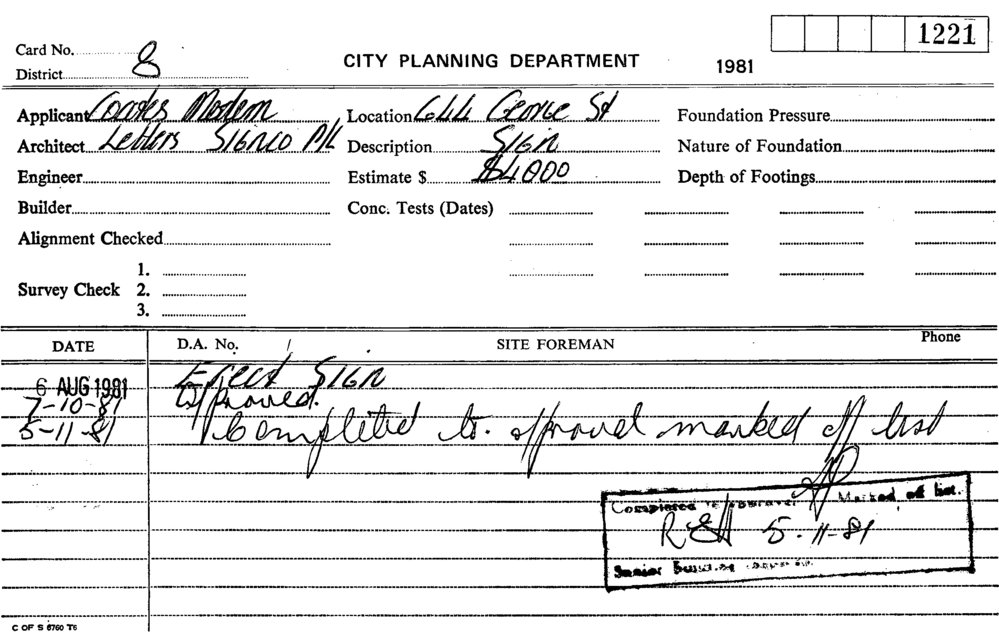 1221
Card No.
District 8
CITY PLANNING DEPARTMENT 1981
Applicant Coates Modern
Location 644 George St
Foundation Pressure
Architect Letters SIGNCO P/L
Description SIGN
Nature of Foundation
Engineer
Estimate $ $4000
Depth of Footings
Builder
Conc. Tests (Dates)
Alignment Checked
1.
Survey Check 2.
3.
DATE D.A. No. SITE FOREMAN Phone
6 AUG 1981 Erect SIGN
7-10-81 approved.
5-11-81 Completed to. approval marked off list
Completed to approval Marked off list.
5-11-81
Senior Building
C OF S 6760 T6